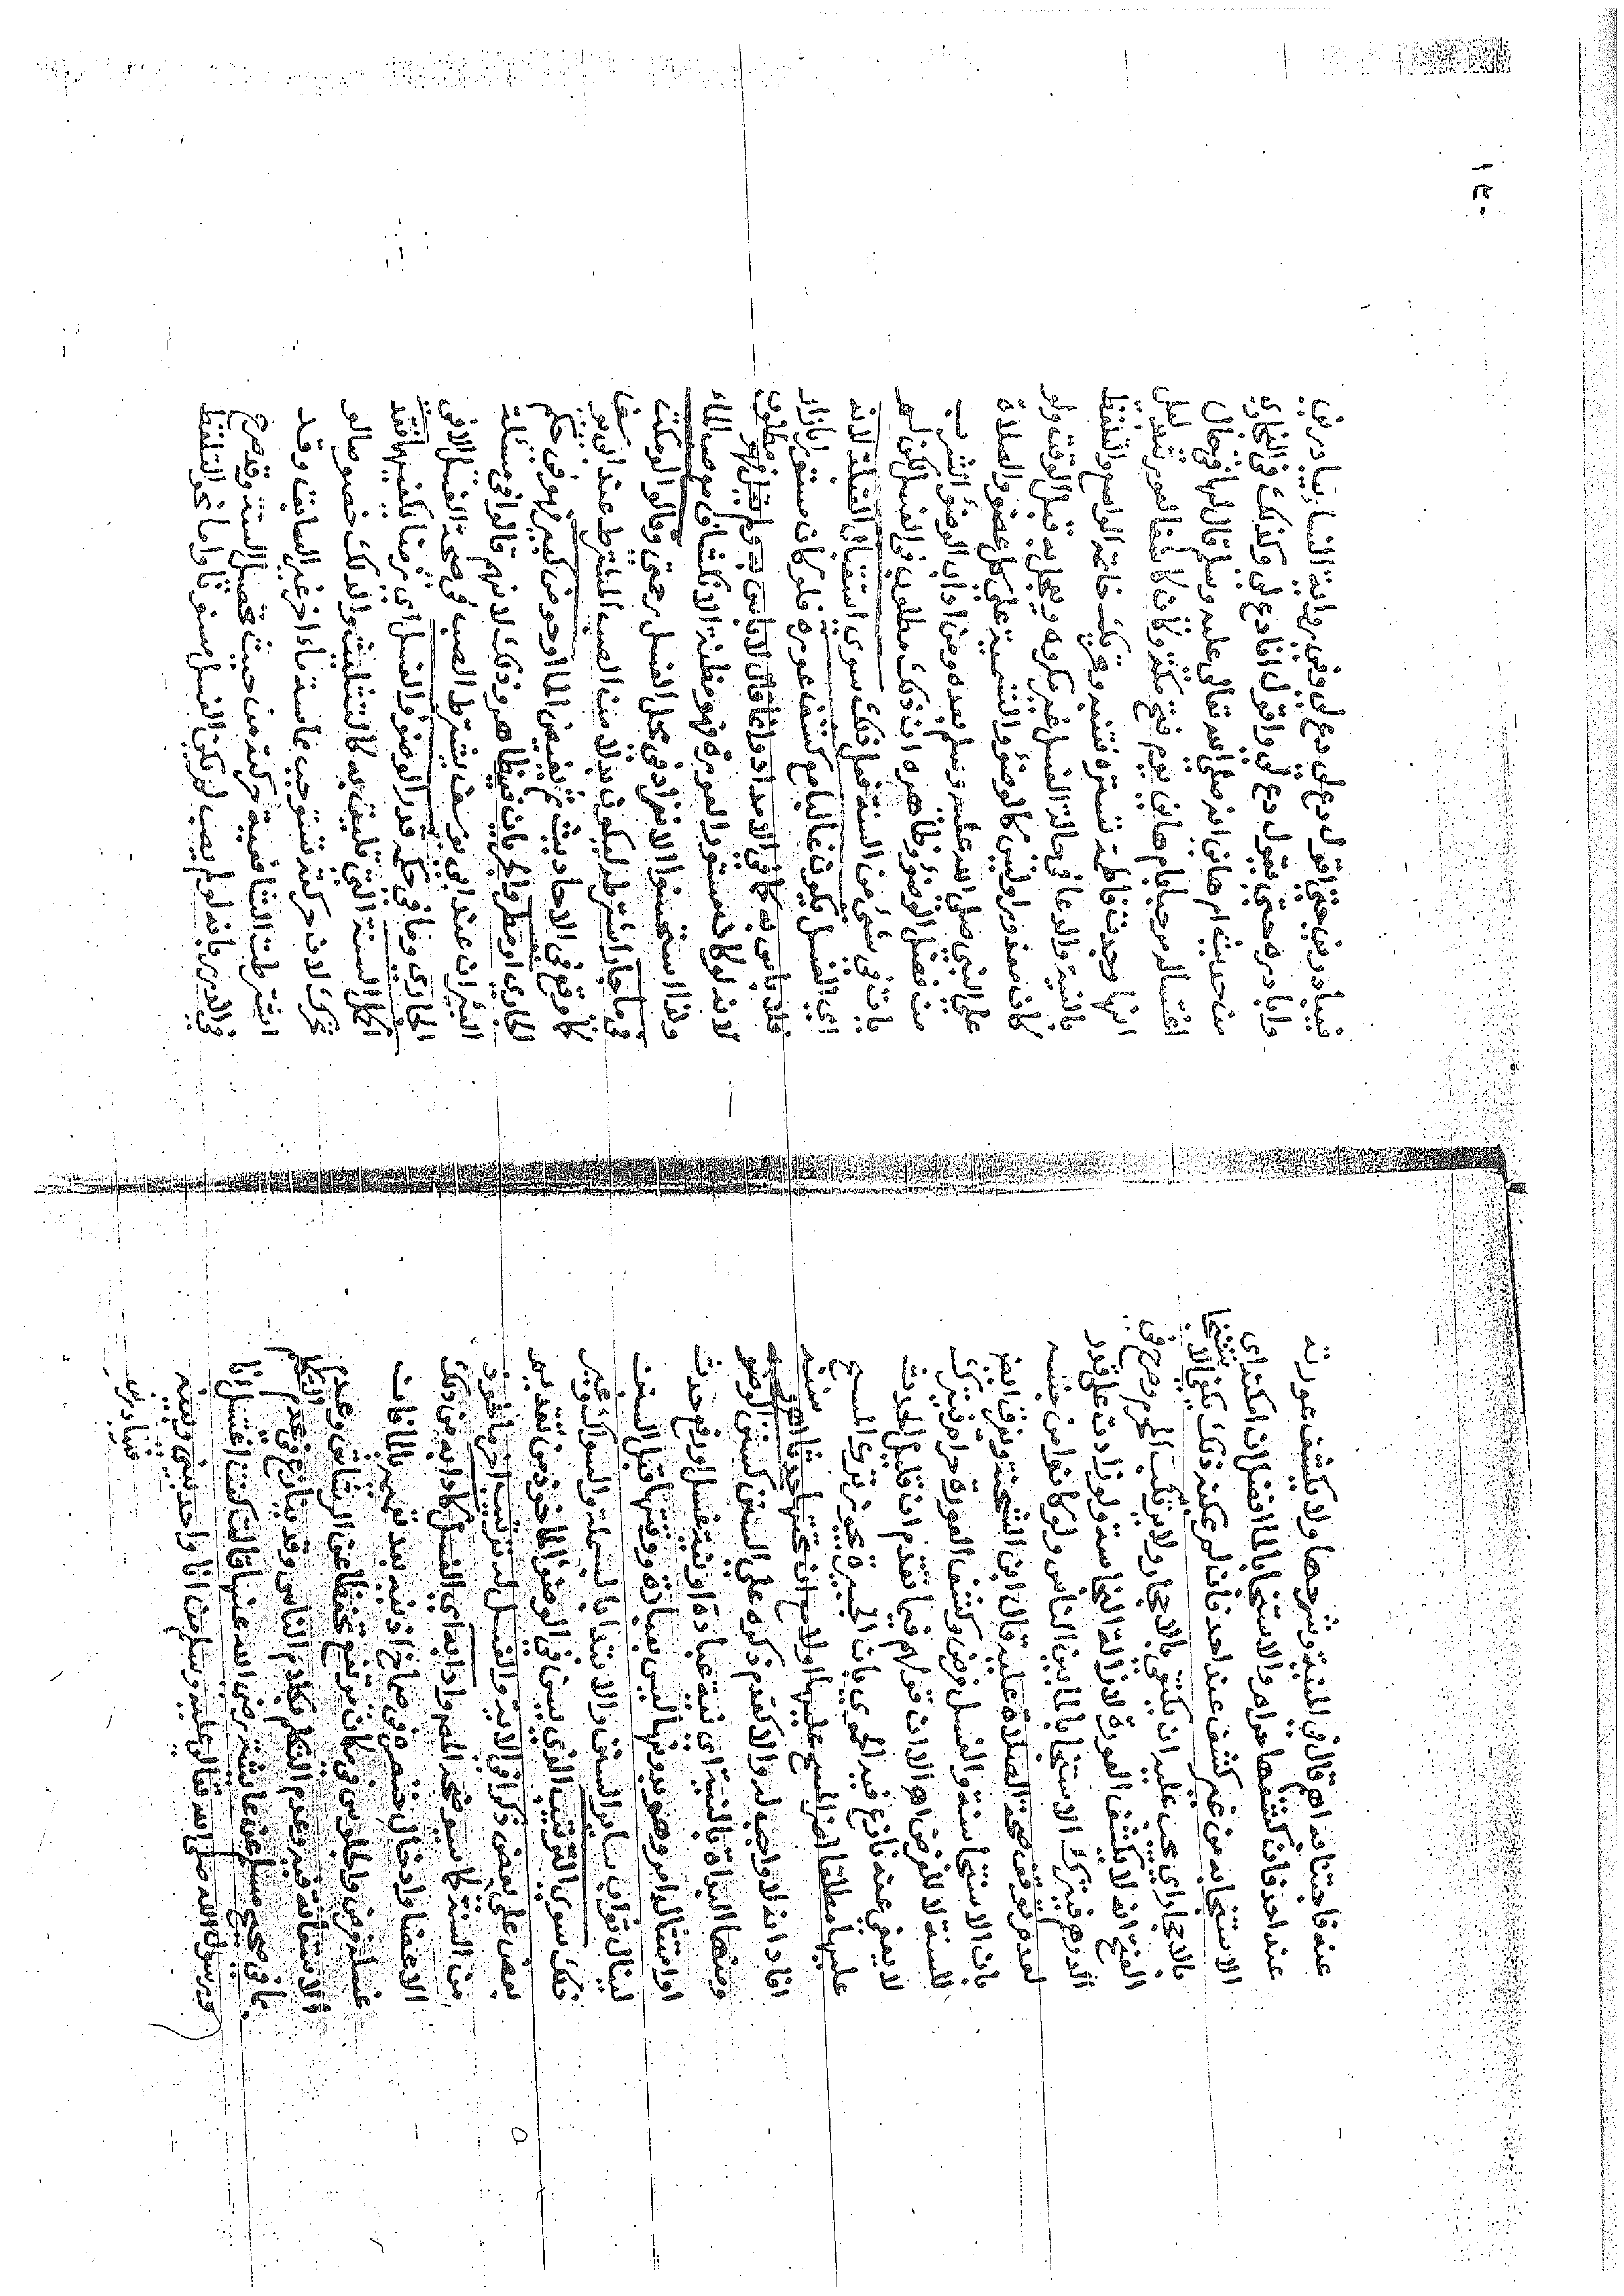 عنه فاجتنابه اهم قال في المنية وشرحها ولا يكشف عورته
عند احد فان كشفها حرام والاستنجا بالماء افضل ان امكنه اي
الاستنجا به من غير كشف عند احد فان لم يمكنه ذلك يكفي الاستنجا
بالاحجار اي يجب عليه ان يكتفي بالاحجار ولا يرتكب المحرم وصرح في
الفتح انه لا يكشف العورة لازالة النجاسة ولو زادت على قدر
الدرهم فيترك الاستنجا بالماء بين الناس ولو كانوا من جنسه
لعدم توقف صحة الصلاة عليه قال ابن الشحنة وفرق ايضا
بان الاستنجا سنة والغسل فرض وكشف العورة حرام فيترك
للسنة لا للفرض اه الا ان قولهم فيما تقدم ان قليل الحدث
لا يعفى عنه نازع فيه الحموي بان الجبيرة يجوز ترك المسح
عليها مطلقا اضر المسح عليها او لا مع ان تحتها حدثا اه
افاد انه لا واجب له والا لقدم ذكره على السنن كسنن الوضوء
ومنها البداة بالنية اي نية عبادة او نية غسل او رفع حدث
او امتثال امر وهو بدونها ليس بعبادة ووقتها قبل السنن
لينال ثواب ساير السنن والابتداء بالبسملة والسواك وغير
ذلك سوى الترتيب الذي يسن في الوضوء الماخوذ من تقديم
بعض على بعض ذكرا في الاية والغسل له ترتيب اخر ماخوذ
من السنة كما سيوضحه المص وادابه اي الغسل كادابه في ذلك
الاعضا وادخال خنصره في صماخ اذنيه بعد تعميم الماء فان
غسله فرض والجلوس في مكان مرتفع تحفظا عن الرشاش وعدم
الاستعانة فيه وعدم التكلم بكلام الناس وقد ينازع في عدم التكلم
بما في صحيح مسلم عن عائشة رضي الله عنها قالت كنت اغتسل انا
ورسول الله صلى الله تعالى عليه وسلم من انا واحد بيني وبينه
فيبادرني
١٤٠
فيبادرني حتى اقول دع لي دع لي وفي رواية النسا يبادرني
وابادره حتى يقول دع لي واقول انا دع لي وكذلك في البخاري
من حديث ام هاني انه صلى الله تعالى عليه وسلم قال لها في حال
اغتساله مرحبا بام هاني يوم فتح مكة وكان كاشفا لعورته بدليل
انها وجدت فاطمة تستره فتنبه وهي تلك خاتمة الواسع والتلفظ
بالنية والدعا في حالة الغسل غير مكروه ويعجل به قبل الوقت ولو
كان معذورا وليس كالوضوء والتسمية على كل عضو والصلاة
على النبي صلى الله عليه وسلم بعده ومن اداب الوضوء الشرب
من فضل الوضوء وظاهره ان ذلك مطلوب في الغسل لكن لم
يات في شي من السنة فعل ذلك سوى استقبال القبلة لانه
اي الغسل يكون غالبا مع كشف عورة فلو كان مستورا بازار
فلا باس به كما في الامداد وانما قال لا باس به ولم يقل هو مطلوب
لانه لو كان مستور العورة فهو مظنة الانكشاف بوصول الماء
ولذا استحسنوا الانفراد في محل الغسل رحمتي وقالوا لو مكث
في ماء جار اشترط ليكون بدلا عن الصب المشترط عند ابي يوسف
كما وقع في الاحاديث ثم يفيض الماء او حوض كبير فهو في حكم
الجاري او مطر والجريان فيه ظاهر وذلك لانهم قالوا في مسئلة
البئر ان عند ابي يوسف يشترط الصب في صحة الغسل الا في
الجاري وما في حكمه قدر الوضوء والغسل اي زمنا يكفيهما فقد
اكمل السنة التي تليق به كالتثليث والدلك خصوصا لو
تحرك لان حركته تستوجب مماسة ماء اخر غير السابق وقد
اشترطت الشافعية حركته من حيث تحصل السنة وقد صرح
في الدرر بانه لو لم يصب لم يكن الغسل مسنونا واما نحو التلفظ